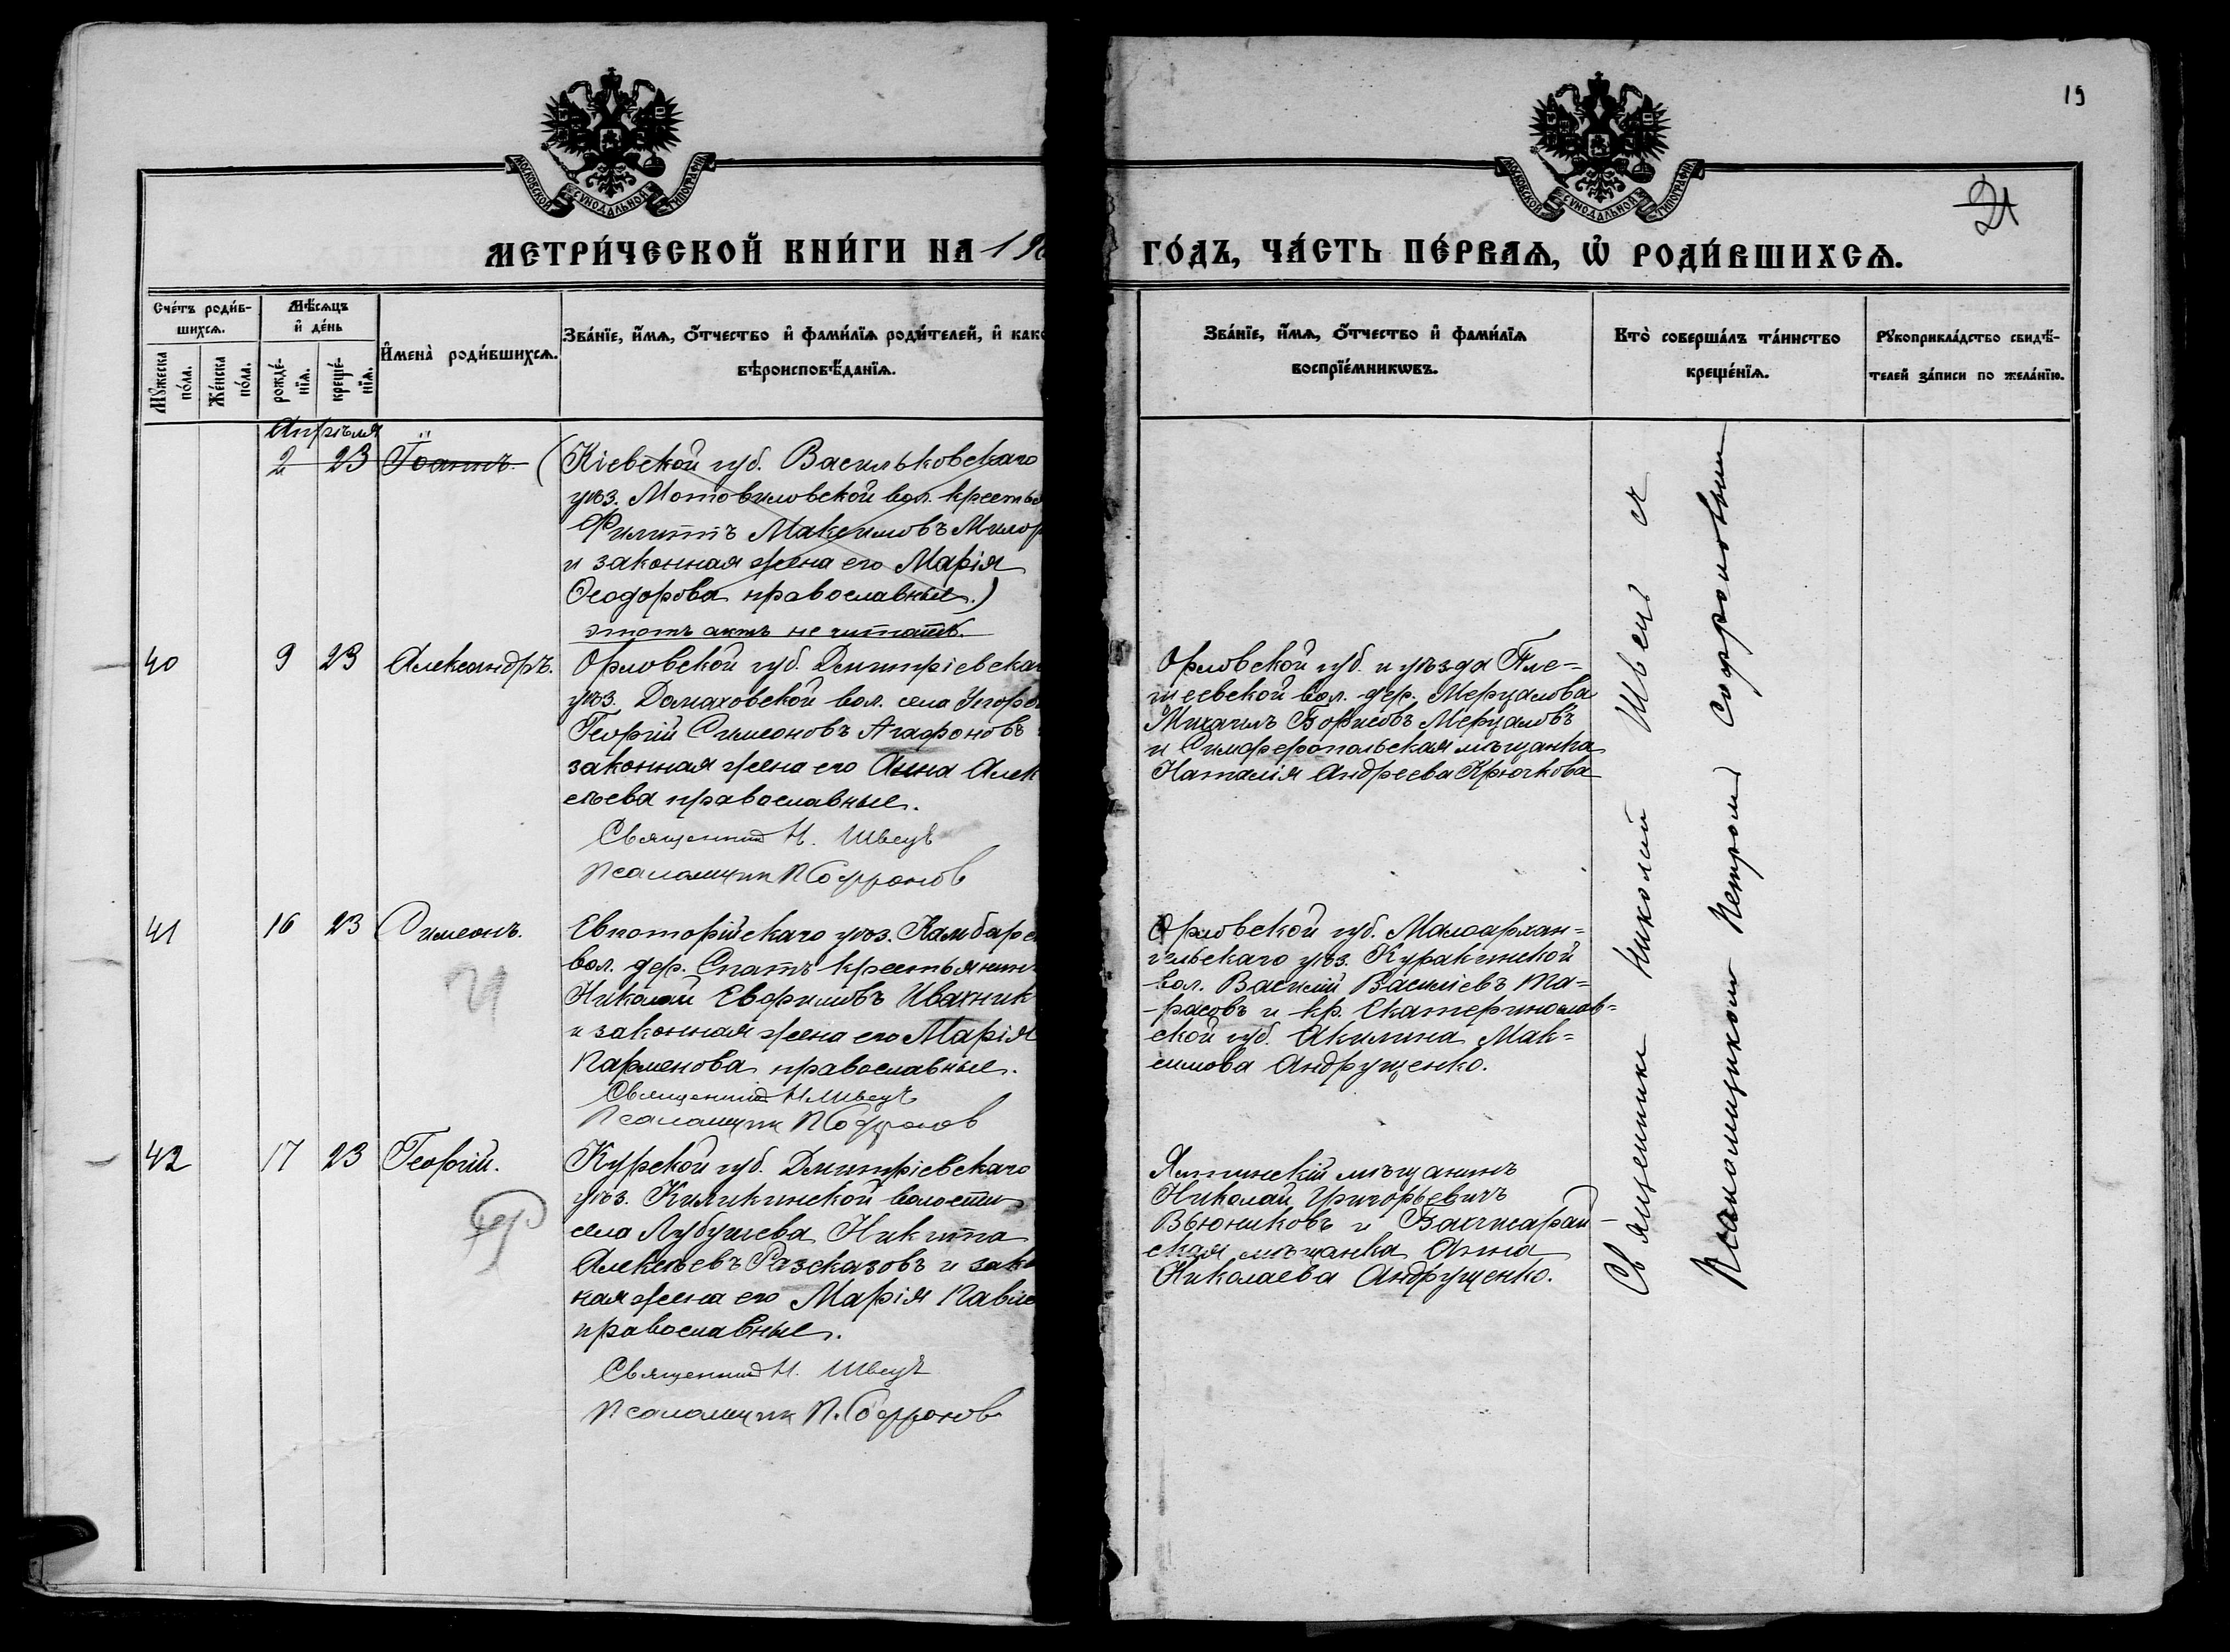 19
21
МОСКОВСКОЙ СѴНОДАЛЬНОЙ ТИПОГРАФІИ
МОСКОВСКОЙ СѴНОДАЛЬНОЙ ТИПОГРАФІИ
МЕТРИ́ЧЕСКОЙ КНИ́ГИ НА 19
ГО́ДЪ, ЧА́СТЬ ПЕ́РВАѦ, Ѡ҆ РОДИ́ВШИХСѦ.
Сче́тъ роди́в-
шихсѧ.
Мꙋ́жеска по́ла.
Же́нска по́ла.
Мѣ́сѧцъ
и҆ де́нь
рожде́-
нїѧ.
креще́-
нїѧ.
И҆мена̀ роди́вшихсѧ.
Зва́нїе, и҆́мѧ, ѻ҆́тчество и҆ фами́лїѧ роди́телей, и҆ како
вѣроисповѣ́данїѧ.
Зва́нїе, и҆́мѧ, ѻ҆́тчество и҆ фами́лїѧ
воспрїе́мникѡвъ.
Кто̀ соверша́лъ та́инство
креще́нїѧ.
Рꙋкоприкла́дство свидѣ́-
телей за́писи по жела́нїю.
Апрѣля
2 23 Іоаннъ (Кіевской губ. Васильковскаго
уѣз. Мотовиловской вол. крестья
Филиппъ Максимовъ Милор
и законная жена его Марія
Ѳеодорова православные.)
этотъ актъ не читать.
40 9 23 Александръ. Орловской губ. Дмитріевска
уѣз. Домаховской вол. села
Георгій Симеоновъ Агафоновъ
законная жена его Анна Алек
сѣева православные.
Священник Н. Швецъ
Псаломщик П Софронов
Орловской губ. и уѣзда Пле-
щеевской вол. дер. Мерцалова
Михаилъ Борисовъ Мерцаловъ
и Симферопольская мѣщанка
Наталія Андреева Крючкова
41 16 23 Симеонъ. Евпаторійскаго уѣз. Камбарс
вол. дер. Спатъ крестьянинъ
Николай Евфимовъ Ивахник
и законная жена его Марія
Парменова православные.
Священник Н Швецъ
Псаломщик П Софронов
Орловской губ. Малоархан-
гельскаго уѣз. Куракинской
вол. Василій Василіевъ Та-
расовъ и кр. Екатеринослав-
ской губ. Акилина Мак-
симова Андрущенко.
42 17 23 Георгій. Курской губ. Дмитріевскаго
уѣз. Киликинской волости
села Лубушева Никита
Алексѣевъ Разсказовъ и зако
ная жена его Марія Павло
православные.
Священник Н. Швецъ
Псаломщик П. Софронов
Ялтинскій мѣщанинъ
Николай Григорьевичъ
Вьюниковъ и Бахчисарай-
ская мѣщанка Анна
Николаева Андрущенко.
Священникъ Николай Швецъ съ
Псаломщикомъ Петромъ Софроновымъ